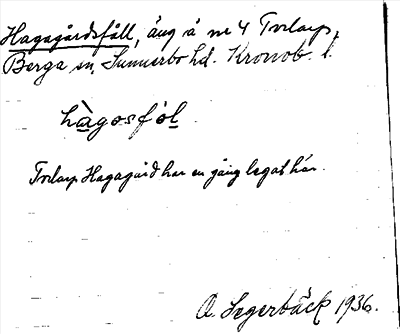 Hagagårdsfäll, äng å nr 4 Torlarp,
Berga sn, Sunnerbo hd. Kronob. l.
hagosfol
Torlarp Hagagård har en gång legat här.
A. Segerbäck 1936.